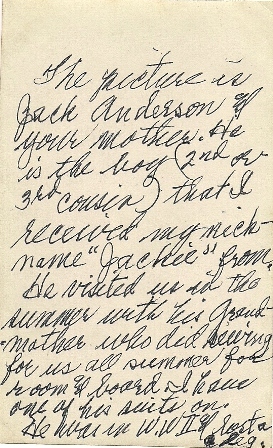 The picture is
Jack Anderson &
your mother. He
is the boy (2nd or
3rd cousin) that I
received my nick-
name "Jackie" from.
He visited us in the
summer with his Grand-
mother who did sewing
for us all summer for
room & board & I have
one of his suits on.
He was in WW II &